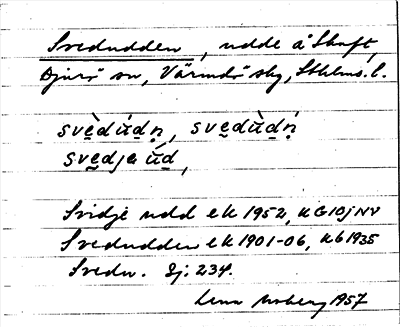 Svedudden, udde å Skuft,
Djurö sn, Värmdö skg, Sthlms. l.
svèdu̇́dn̥, svedu̇̀dṇ́
svedja ú̇d,
Svidje udd ek 1952, KG 10j NV
Svedudden ek 1901-06, Kb 1935
Svedu. Sj. 234.
Lena Moberg 1957